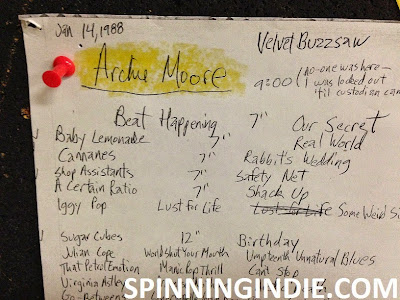 Jan 14, 1988
Velvet Buzzsaw
Archie Moore
9:00 (no-one was here—
I was locked out
'til custodian cam
Beat Happening 7" Our Secret
Baby Lemonade 7" Real World
Cannanes 7" Rabbit's Wedding
Shop Assistants 7" Safety Net
A Certain Ratio 7" Shack Up
Iggy Pop Lust for Life Lust for Life Some Weird Si
Sugar Cubes 12" Birthday
Julian Cope World Shut Your Mouth Umpteenth Unnatural Blues
That Petrol Emotion Manic Pop Thrill Can't Stop
Virginia Astley
Go-Betweens
SPINNINGINDIE.COM